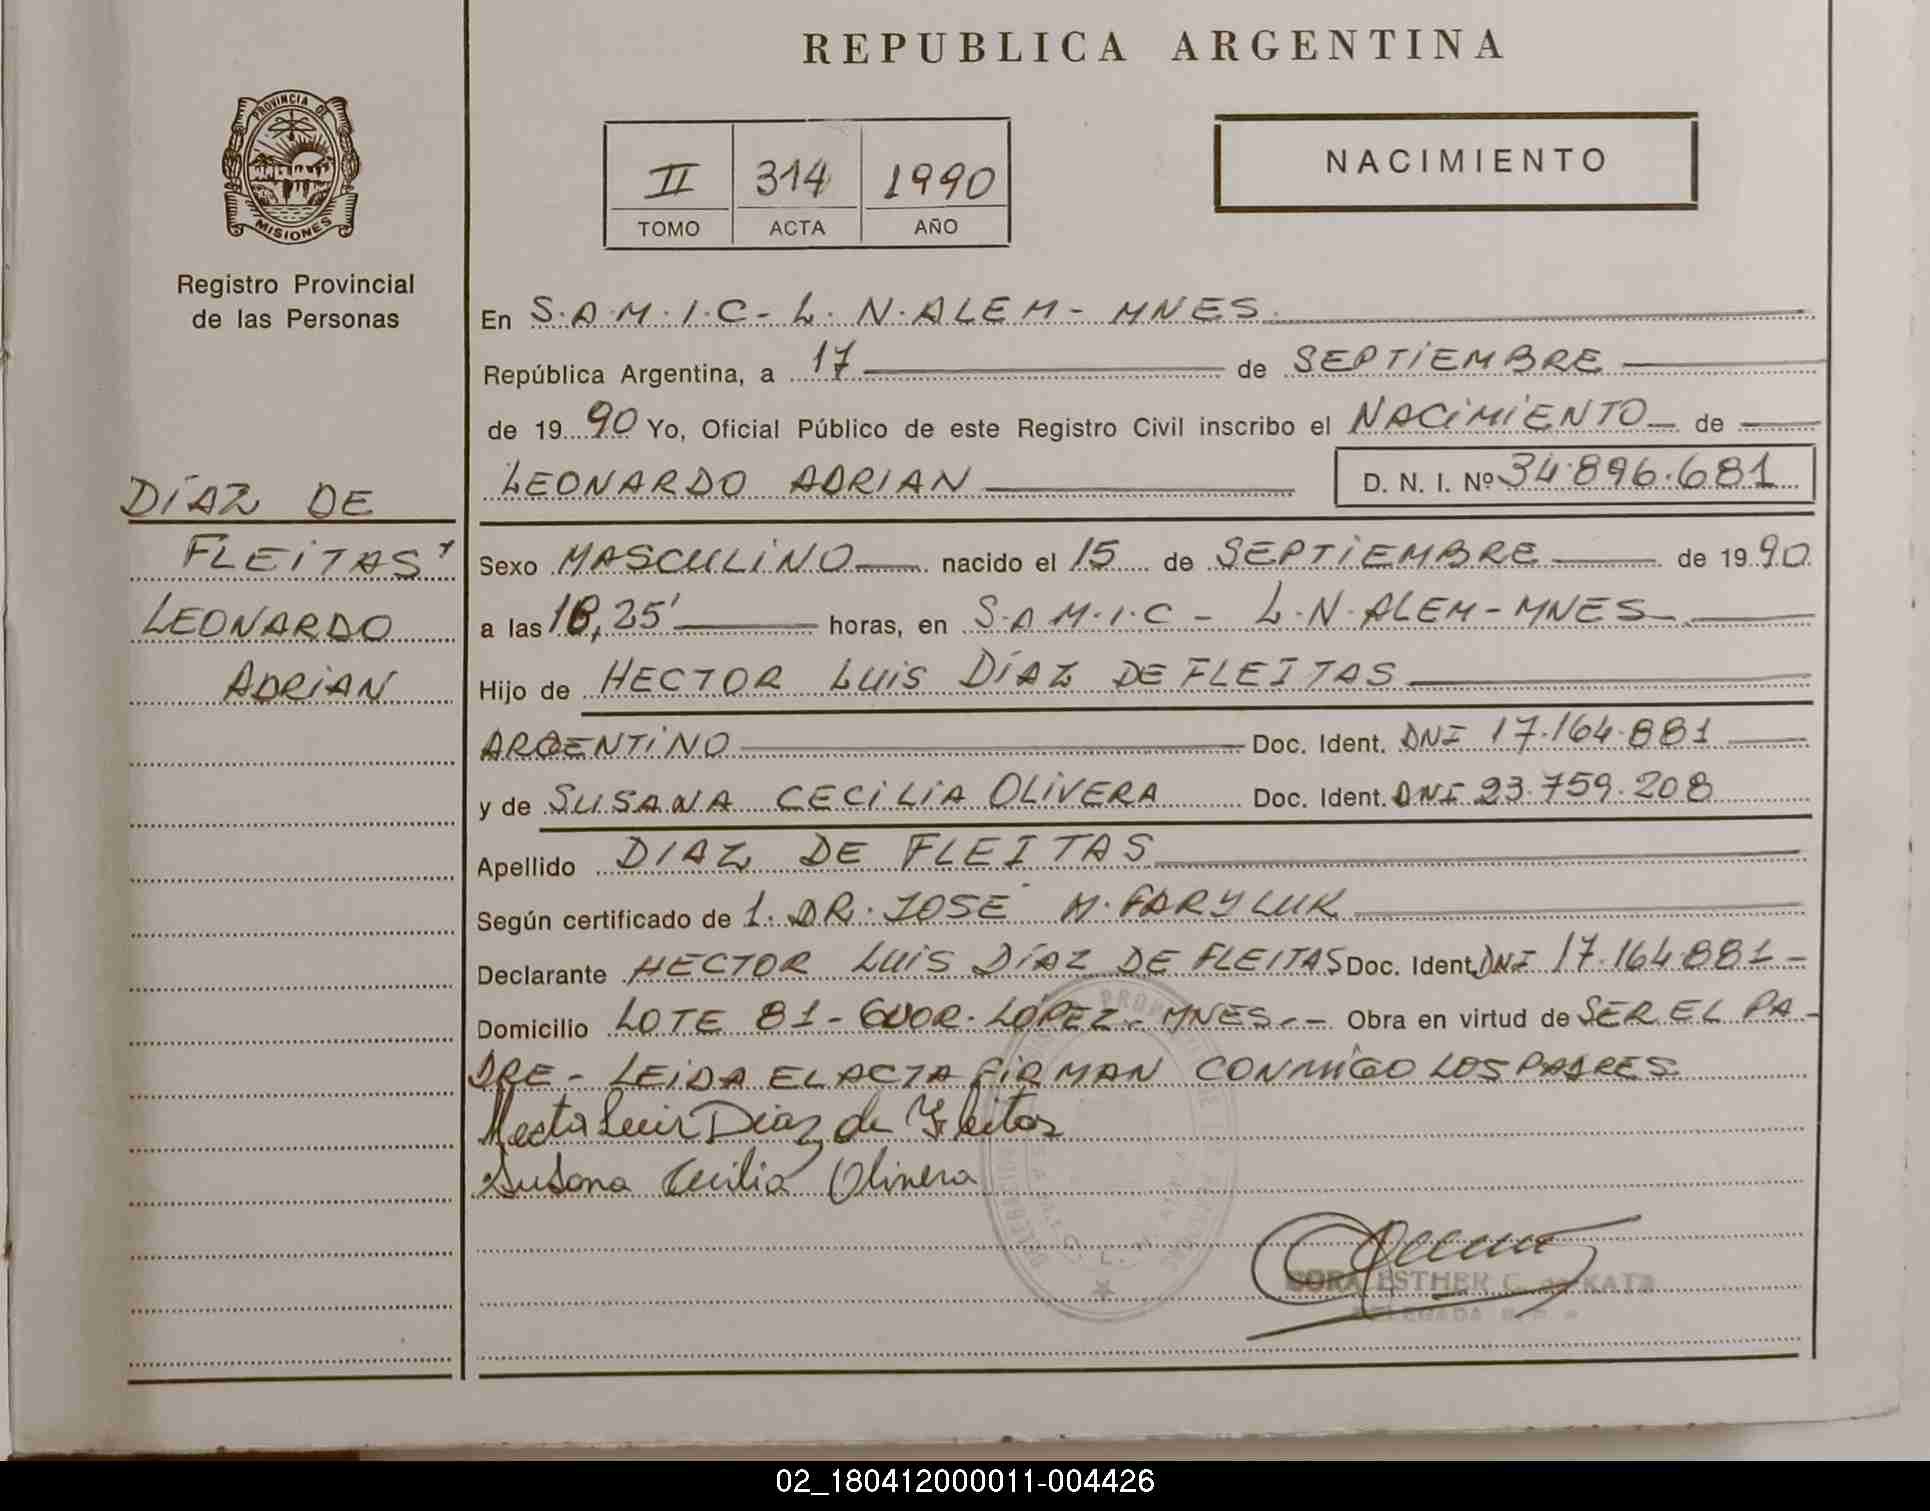 REPUBLICA ARGENTINA
PROVINCIA DE
MISIONES
Registro Provincial
de las Personas
II 314 1990
TOMO ACTA AÑO
NACIMIENTO
DÍAZ DE
FLEITAS
LEONARDO
ADRIAN
En S.A.M.I.C - L.N.ALEM - MNES
República Argentina, a 17 de SEPTIEMBRE
de 1990 Yo, Oficial Público de este Registro Civil inscribo el NACIMIENTO de
LEONARDO ADRIAN D. N. I. Nº 34.896.681
Sexo MASCULINO nacido el 15 de SEPTIEMBRE de 1990
a las 18,25' horas, en S.A.M.I.C - L.N.ALEM - MNES
Hijo de HECTOR LUIS DÍAZ DE FLEITAS
ARGENTINO Doc. Ident. DNI 17.164.881
y de SUSANA CECILIA OLIVERA Doc. Ident. DNI 23.759.208
Apellido DIAZ DE FLEITAS
Según certificado de 1. DR. JOSÉ M. FARYLUK
Declarante HECTOR LUIS DÍAZ DE FLEITAS Doc. Ident. DNI 17.164.881 -
Domicilio LOTE 81 - GDOR. LÓPEZ - MNES. - Obra en virtud de SER EL PA-
DRE - LEIDA EL ACTA FIRMAN CONMIGO LOS PADRES
Hector Luis Diaz de Fleitas
Susana Cecilia Olivera
ESTHER C.
DELEGADA
02_180412000011-004426